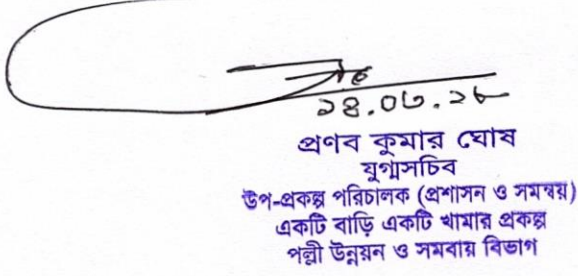 ২৪.০৬.২৮
প্রণব কুমার ঘোষ
যুগ্মসচিব
উপ-প্রকল্প পরিচালক (প্রশাসন ও সমন্বয়)
একটি বাড়ি একটি খামার প্রকল্প
পল্লী উন্নয়ন ও সমবায় বিভাগ